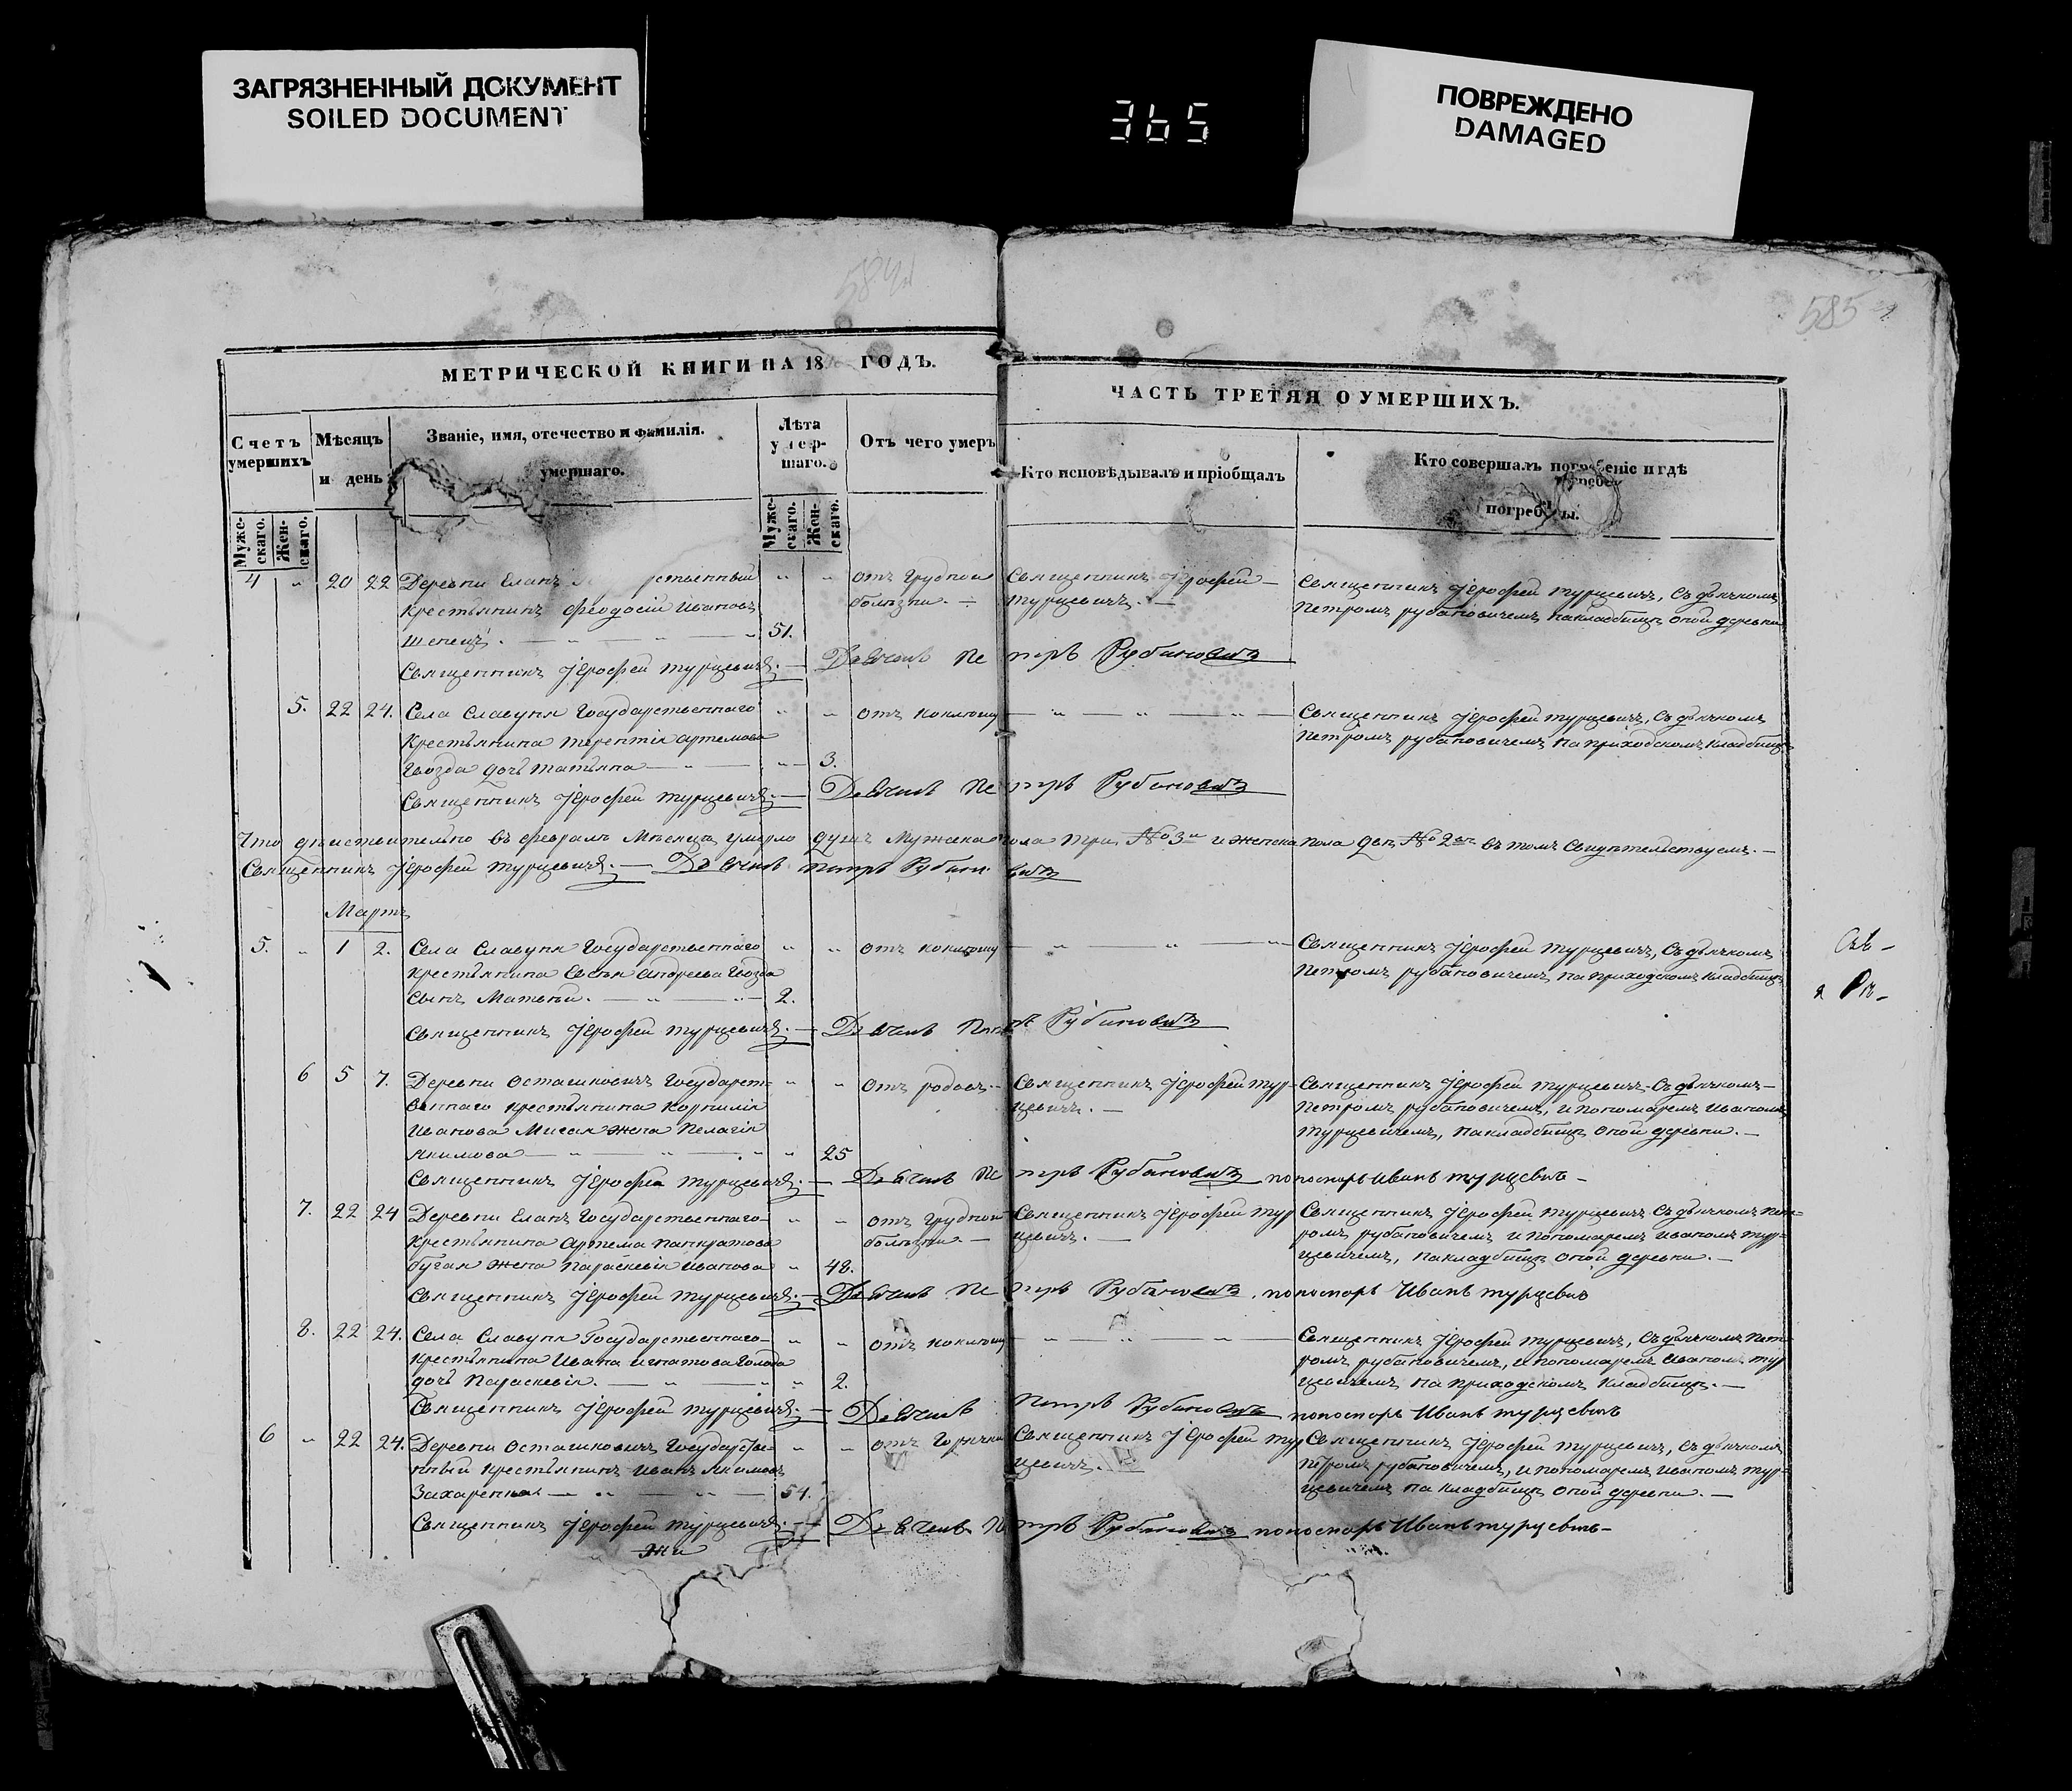 ЗАГРЯЗНЕННЫЙ ДОКУМЕНТ
SOILED DOCUMENT
365
ПОВРЕЖДЕНО
DAMAGED
585
МЕТРИЧЕСКОЙ КНИГИ НА 18 ГОДЪ.
Счетъ умершихъ
Мѣсяцъ и день
Званіе, имя, отечество и фамилія умершаго.
Лѣта умершаго.
Отъ чего умеръ
Мужескаго. Женскаго.
Мужескаго. Женскаго.
ЧАСТЬ ТРЕТЯЯ О УМЕРШИХЪ.
Кто исповѣдывалъ и пріобщалъ
Кто совершалъ погребеніе и гдѣ
4 " 20 22 Деревни Еланъ ственный " " отъ грудной Священникъ Іерофей Священникъ Іерофей Турцевичъ, Съ дьячкомъ
Крестьянинъ Феодосій Ивановъ болѣзни. — Турцевичъ. — Петромъ Рубановичемъ на кладбищѣ оной деревни
Шепецъ. — " — " — " 51.
Священникъ Іерофей Турцевичъ. — Дьячекъ Петръ Рубановичъ
5. 22 24. Села Славуня Государственнаго " " отъ коклюшу — " — " — " — Священникъ Іерофей Турцевичъ, Съ дьячкомъ
Крестьянина Терентія Артемова Петромъ Рубановичемъ на приходскомъ кладбищѣ
Гвозда дочь Татьяна — " — " — 3.
Священникъ Іерофей Турцевичъ. — Дьячекъ Петръ Рубановичъ
Что дѣйствительно въ февралѣ Мѣсяцѣ умерло душъ Мужеска пола три № 3 и женска пола двѣ № 2 въ томъ свидѣтельствуемъ. —
Священникъ Іерофей Турцевичъ. — Дьячекъ Петръ Рубановичъ
Мартъ
5. " 1 2. Села Славуня Государственнаго " " отъ коклюшу — " — " — " — Священникъ Іерофей Турцевичъ, Съ дьячкомъ
Крестьянина Андреева Гвозда Петромъ Рубановичемъ на приходскомъ кладбищѣ
Сынъ Матвѣй. — " — " — 2.
Священникъ Іерофей Турцевичъ. — Дьячекъ Петръ Рубановичъ
6 5 7. Деревни Осташковичъ Государст- " " отъ родовъ. — Священникъ Іерофей Тур- Священникъ Іерофей Турцевичъ. Съ дьячкомъ
веннаго крестьянина Корнилія цевичъ. — Петромъ Рубановичемъ, и пономаремъ Иваномъ
Иванова Мисая жена Пелагія Турцевичемъ, на кладбищѣ оной деревни. —
Якимова — " — " — " " 25
Священникъ Іерофей Турцевичъ. — Дьячекъ Петръ Рубановичъ пономарь Иванъ Турцевичъ —
7. 22 24 Деревни Еланъ Государственнаго " " отъ грудной Священникъ Іерофей Тур Священникъ Іерофей Турцевичъ Съ дьячкомъ Пет-
Крестьянина Артема Панкратова болѣзни. — цевичъ. — ромъ Рубановичемъ и пономаремъ Иваномъ Тур-
бугая жена Параскевія Иванова " 48. цевичемъ, на кладбищѣ оной деревни. —
Священникъ Іерофей Турцевичъ. — Дьячекъ Петръ Рубановичъ, пономарь Иванъ Турцевичъ
8. 22 24. Села Славуня Государственнаго " " отъ коклюшу — " — " — " — Священникъ Іерофей Турцевичъ, Съ дьячкомъ Пет-
Крестьянина Ивана Игнатова ромъ Рубановичемъ, и пономаремъ Иваномъ Тур
дочь Параскевія. — " — " " 2. цевичемъ на приходскомъ кладбищѣ. —
Священникъ Іерофей Турцевичъ. — Дьячекъ Петръ Рубановичъ пономарь Иванъ Турцевичъ
6 " 22 24. Деревни Осташковичъ Государстве- " " отъ горячки Священникъ Іерофей Тур Священникъ Іерофей Турцевичъ, Съ дьячкомъ
нный крестьянинъ Иванъ Якимовъ цевичъ. — Петромъ Рубановичемъ, и пономаремъ Иваномъ Тур-
Захаренка — " — " — 54. цевичемъ на кладбищѣ оной деревни. —
Священникъ Іерофей Турцевичъ. — Дьячекъ Петръ Рубановичъ пономарь Иванъ Турцевичъ —